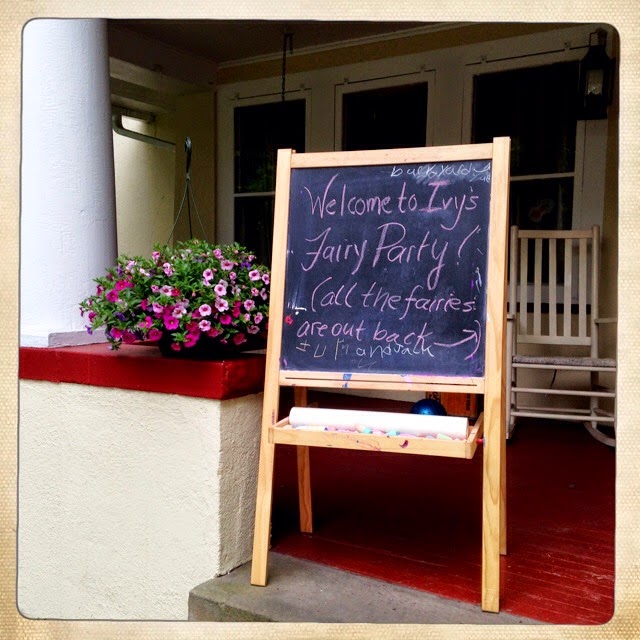 backyard
Welcome to Ivy's
Fairy Party!
(all the fairies
are out back →)